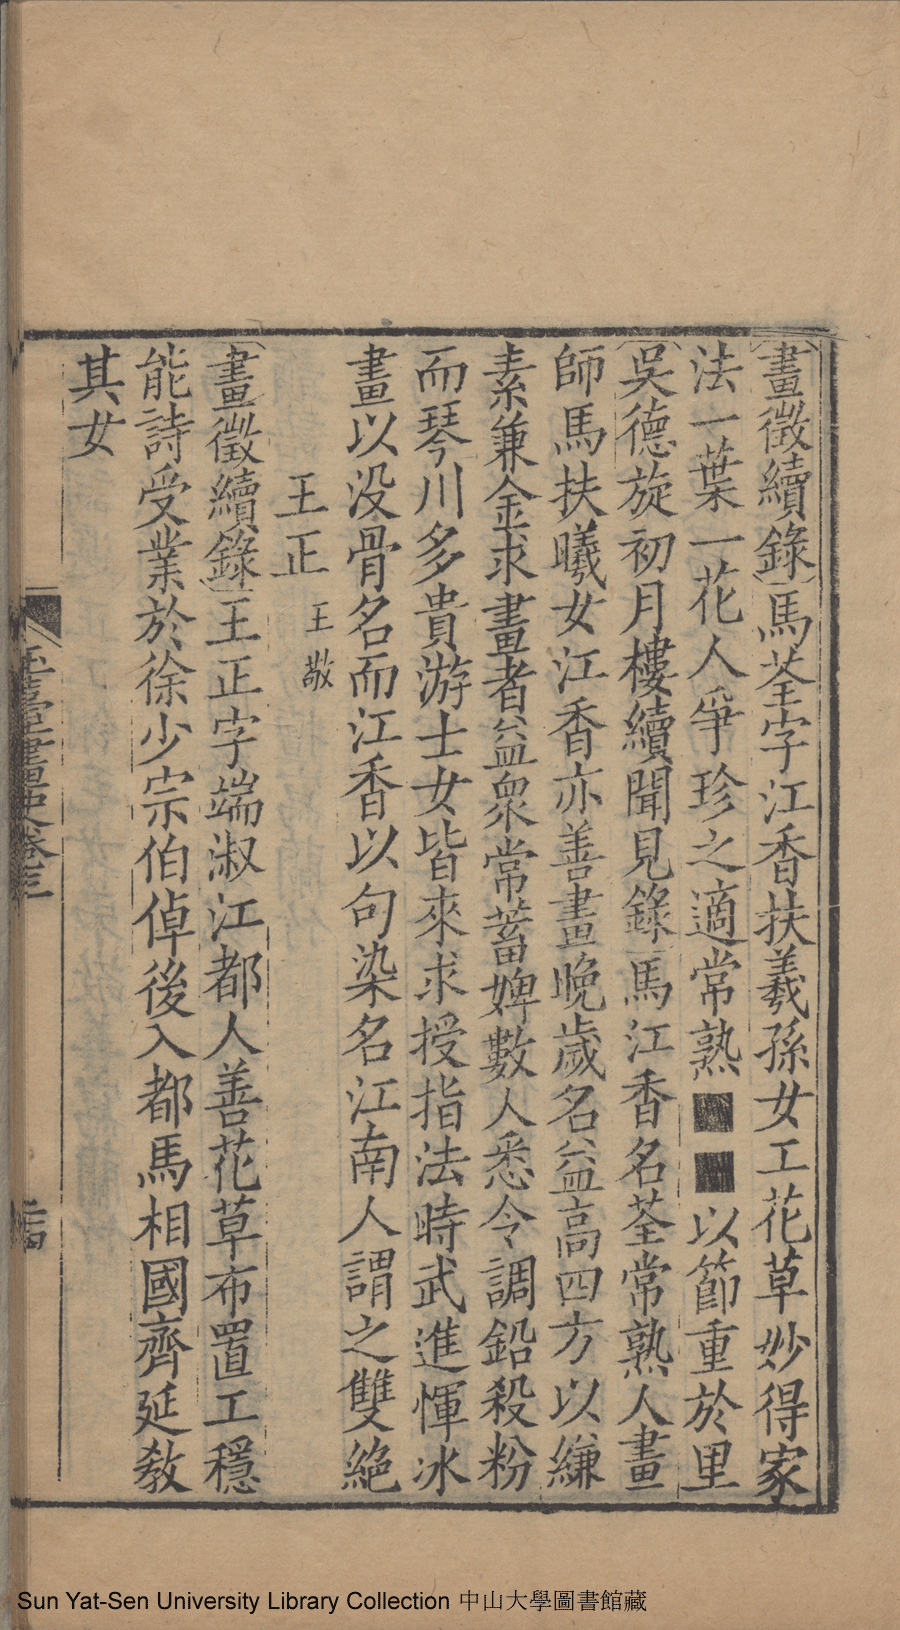 畫徵續錄馬荃字江香扶羲孫女工花草妙得家
法一葉一花人爭珍之適常熟■■以節重於里
吳德旋初月樓續聞見錄馬江香名荃常熟人畫
師馬扶曦女江香亦善畫晚歲名益高四方以縑
素兼金求畫者益衆常蓄婢數人悉令調鉛殺粉
而琴川多貴游士女皆來求授指法時武進惲冰
畫以没骨名而江香以句染名江南人謂之雙絕
王正 王敬
畫徵續錄王正字端淑江都人善花草布置工穩
能詩受業於徐少宗伯倬後入都馬相國齊延教
其女
玉臺畫史卷三
二十四
Sun Yat-Sen University Library Collection 中山大學圖書館藏